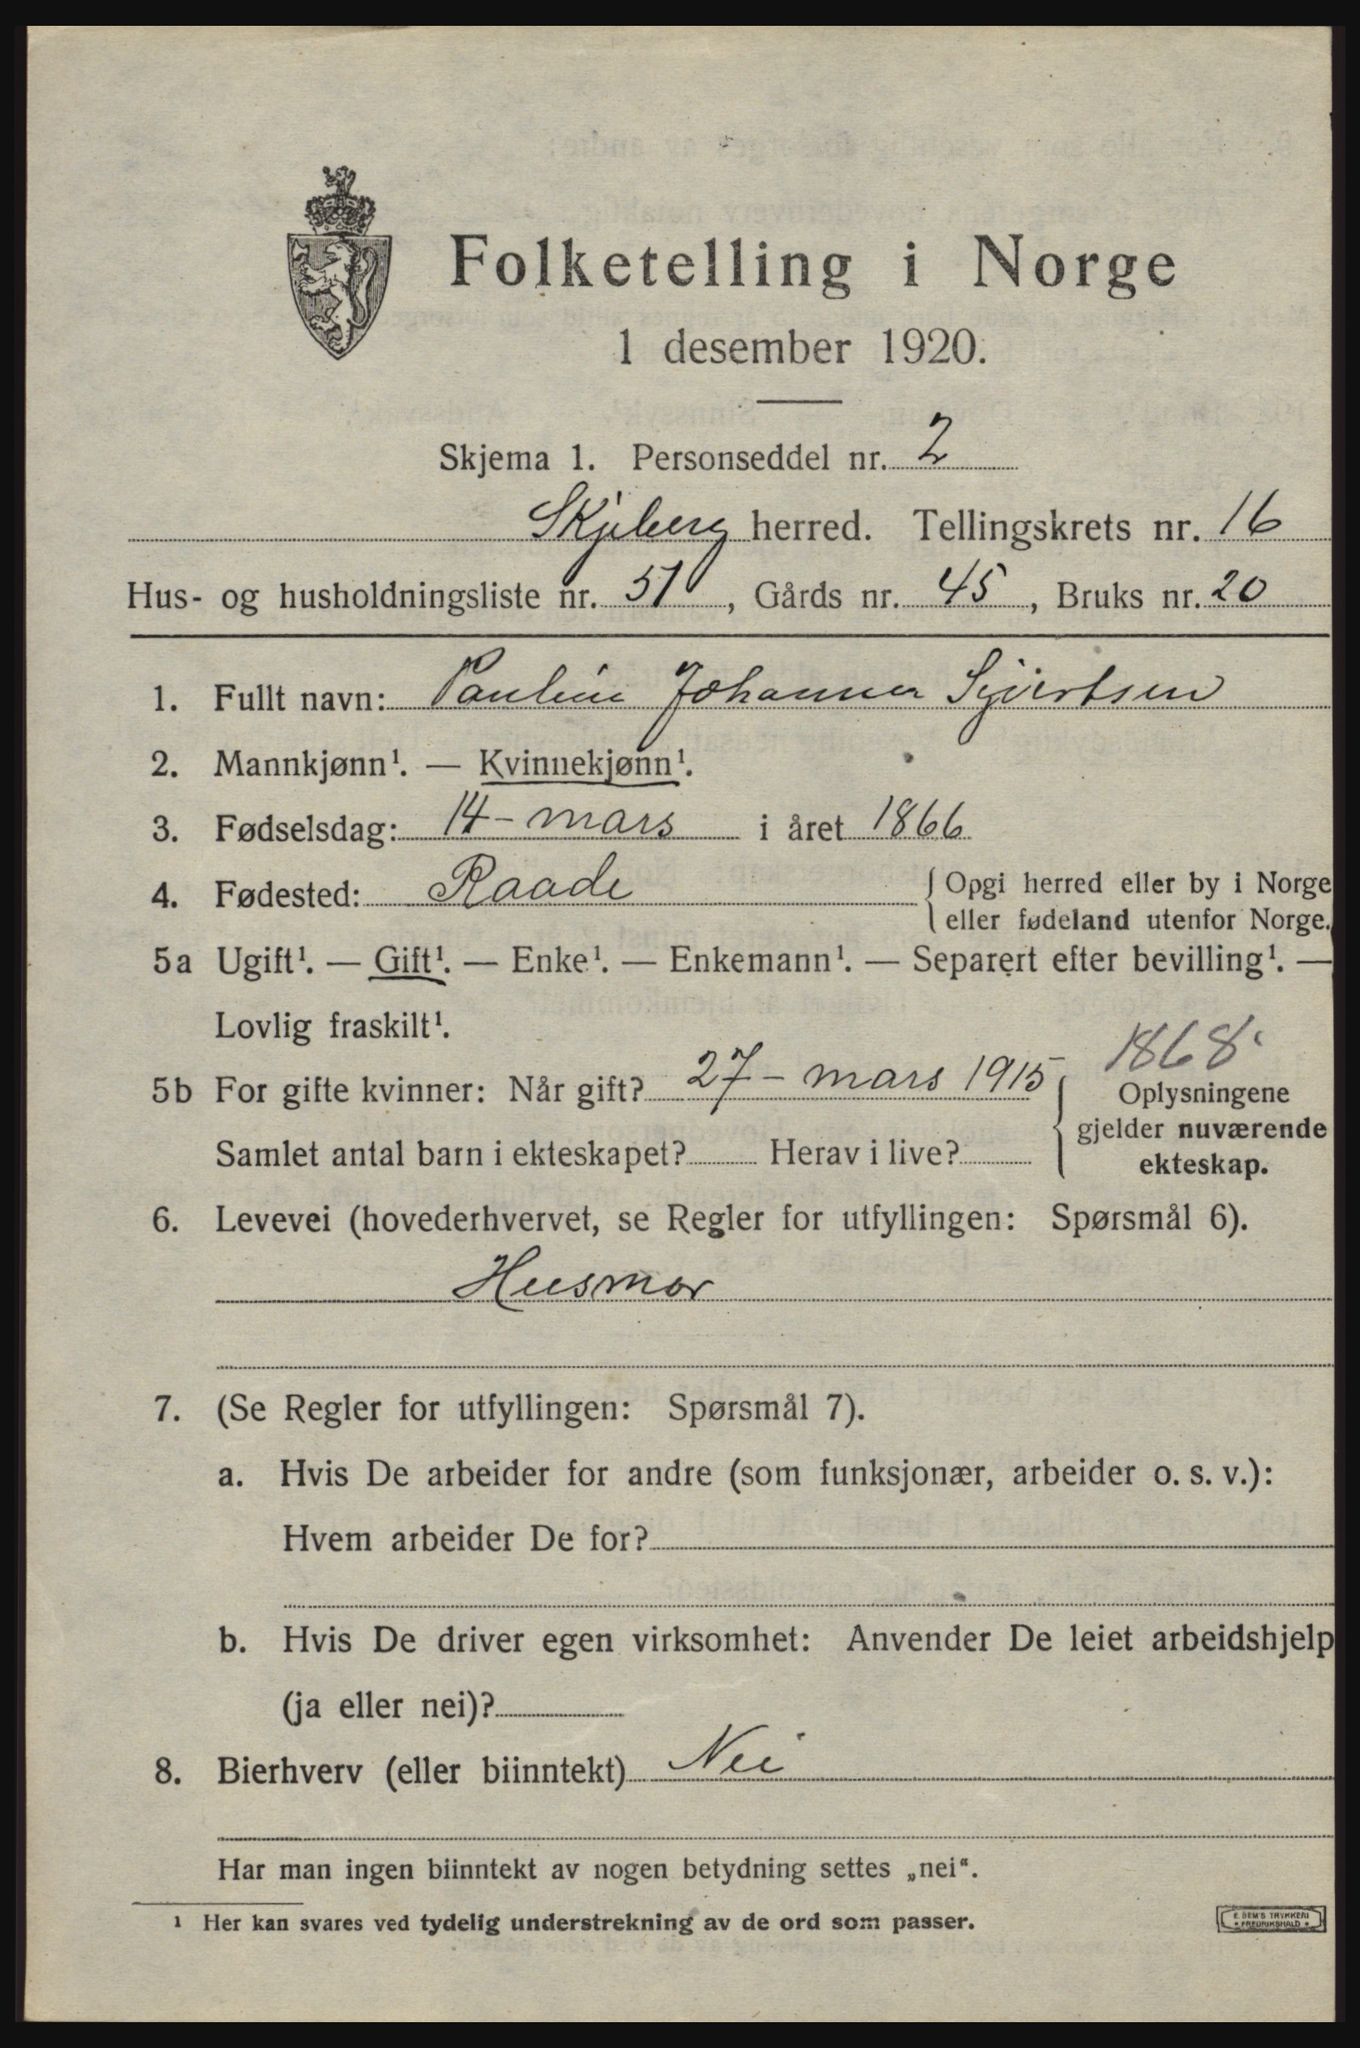 Folketelling i Norge
1 desember 1920.
Skjema 1. Personseddel nr. 2
Skjeberg herred. Tellingskrets nr. 16
Hus- og husholdningsliste nr. 51, Gårds nr. 45, Bruks nr. 20
1. Fullt navn: Pauline Johanna Syvertsen
2. Mannkjønn¹. — Kvinnekjønn¹.
3. Fødselsdag: 14 - mars i året 1866
4. Fødested: Raade { Opgi herred eller by i Norge
eller fødeland utenfor Norge.
5a Ugift¹. — Gift¹. — Enke¹. — Enkemann¹. — Separert efter bevilling¹. —
Lovlig fraskilt¹.
1868
5b For gifte kvinner: Når gift? 27 - mars 1915 { Oplysningene
gjelder nuværende
Samlet antal barn i ekteskapet? Herav i live? ekteskap.
6. Levevei (hovederhvervet, se Regler for utfyllingen: Spørsmål 6).
Husmor
7. (Se Regler for utfyllingen: Spørsmål 7).
a. Hvis De arbeider for andre (som funksjonær, arbeider o. s. v.):
Hvem arbeider De for?
b. Hvis De driver egen virksomhet: Anvender De leiet arbeidshjelp
(ja eller nei)?
8. Bierhverv (eller biinntekt) Nei
Har man ingen biinntekt av nogen betydning settes „nei“.
¹ Her kan svares ved tydelig understrekning av de ord som passer.
E. SEM'S TRYKKERI
FREDRIKSHALD